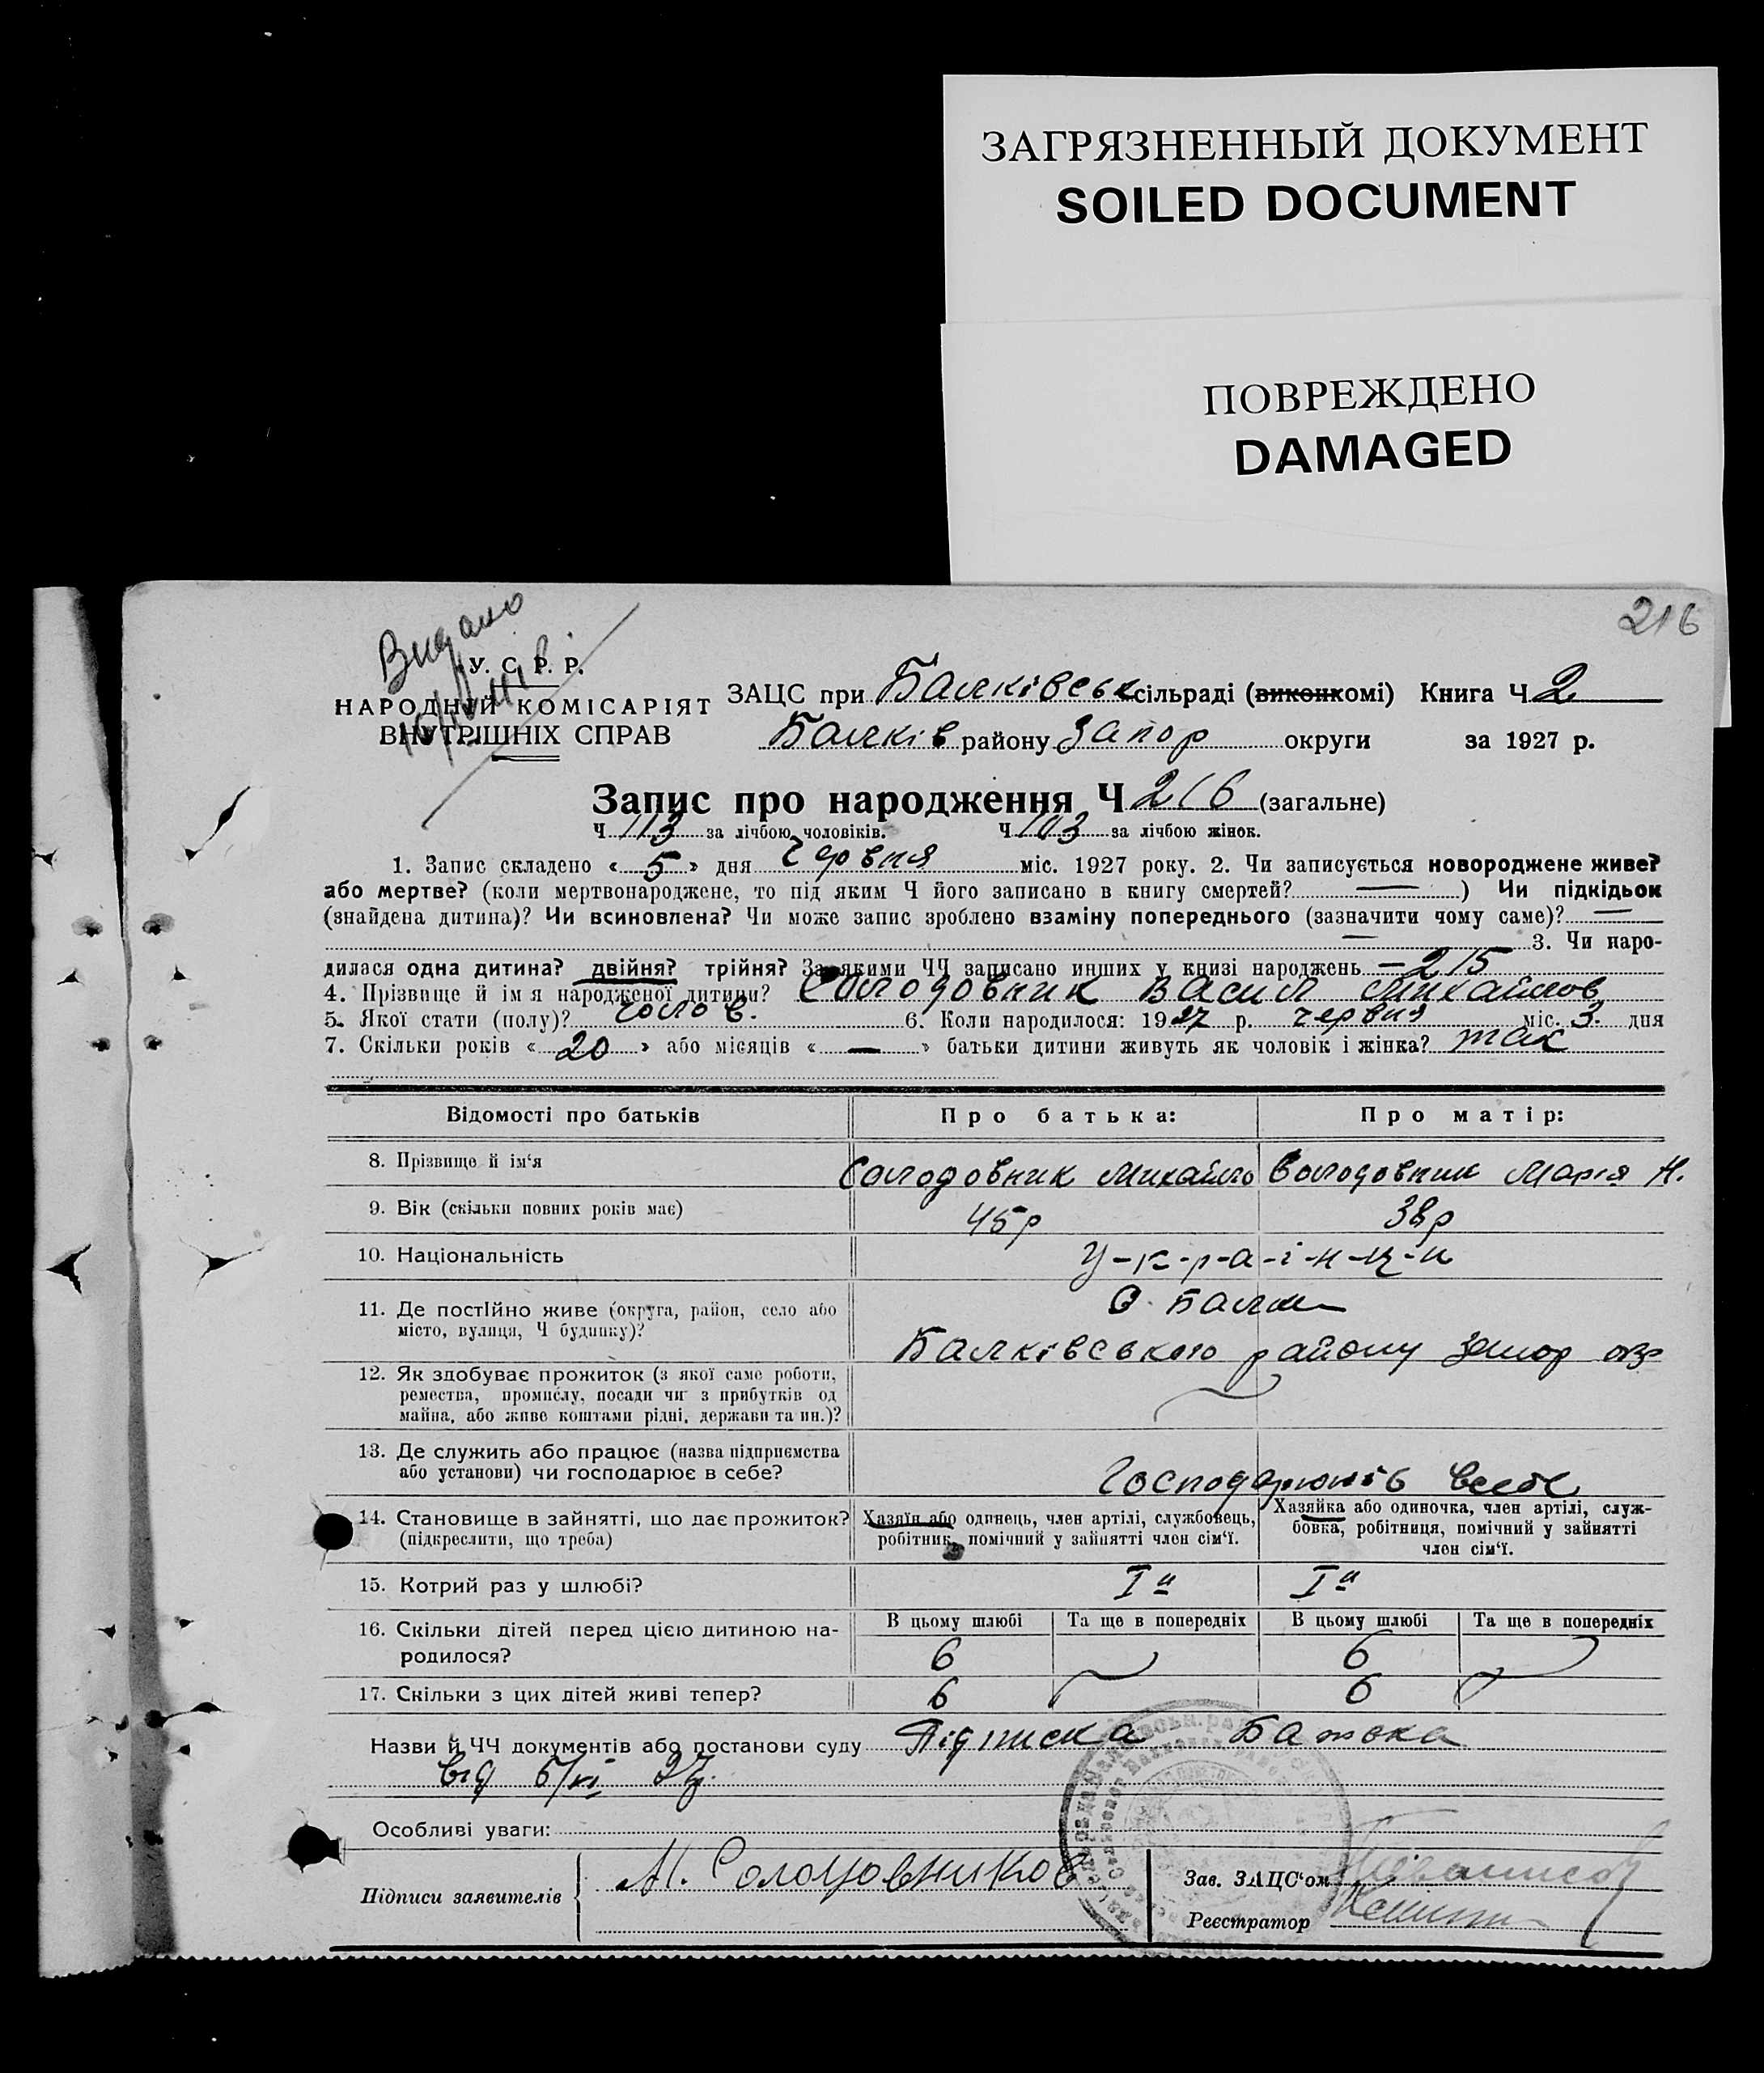 ЗАГРЯЗНЕННЫЙ ДОКУМЕНТ
SOILED DOCUMENT
ПОВРЕЖДЕНО
DAMAGED
216
Видано
У. С. Р. Р.
НАРОДНІЙ КОМІСАРІЯТ
ВНУТРІШНІХ СПРАВ
ЗАЦС при Балківськ сільраді (виконкомі) Книга Ч 2
Балків району Запор округи за 1927 р.
Запис про народження Ч 216 (загальне)
Ч 113 за лічбою чоловіків. Ч 103 за лічбою жінок.
1. Запис складено « 5 » дня червня міс. 1927 року. 2. Чи записується новороджене живе?
або мертве? (коли мертвонароджене, то під яким Ч його записано в книгу смертей? — ) Чи підкідьок
(знайдена дитина)? Чи всиновлена? Чи може запис зроблено взаміну попереднього (зазначити чому саме)? —
— 3. Чи наро-
дилася одна дитина? двійня? трійня? За якими ЧЧ записано инших у книзі народжень – 215
4. Прізвище й ім я народженої дитини? Солодовник Васил Михайлов
5. Якої стати (полу)? чолов. 6. Коли народилося: 1927 р. червня міс. 3 дня
7. Скільки років « 20 » або місяців « — » батьки дитини живуть як чоловік і жінка? так
Відомості про батьків Про батька: Про матір:
8. Прізвище й ім'я Солодовник Михайло Солодовник Марія Н.
9. Вік (скільки повних років має) 45р 38р
10. Національність У-к-р-а-ї-н-ц-и
11. Де постійно живе (округа, район, село або С. Балки
місто, вулиця, Ч будинку)? Балківського району Запор окр
12. Як здобуває прожиток (з якої саме роботи,
ремества, промислу, посади чи з прибутків од
майна, або живе коштами рідні, держави та ин.)?
13. Де служить або працює (назва підприємства
або установи) чи господарює в себе? Господарюють в себе
14. Становище в зайнятті, що дає прожиток? Хазяїн або одинець, член артілі, службовець, Хазяйка або одиночка, член артілі, служ-
(підкреслити, що треба) робітник, помічний у зайнятті член сім'ї. бовка, робітниця, помічний у зайнятті
член сім'ї.
15. Котрий раз у шлюбі? Iй Iй
16. Скільки дітей перед цією дитиною на- В цьому шлюбі Та ще в попередніх В цьому шлюбі Та ще в попередніх
родилося? 6 6
17. Скільки з цих дітей живі тепер? 6 6
Назви й ЧЧ документів або постанови суду Підписка Батька
від 5/VI 27р.
Особливі уваги:
Підписи заявителів М. Солодовников Зав. ЗАЦС'ом
Реєстратор